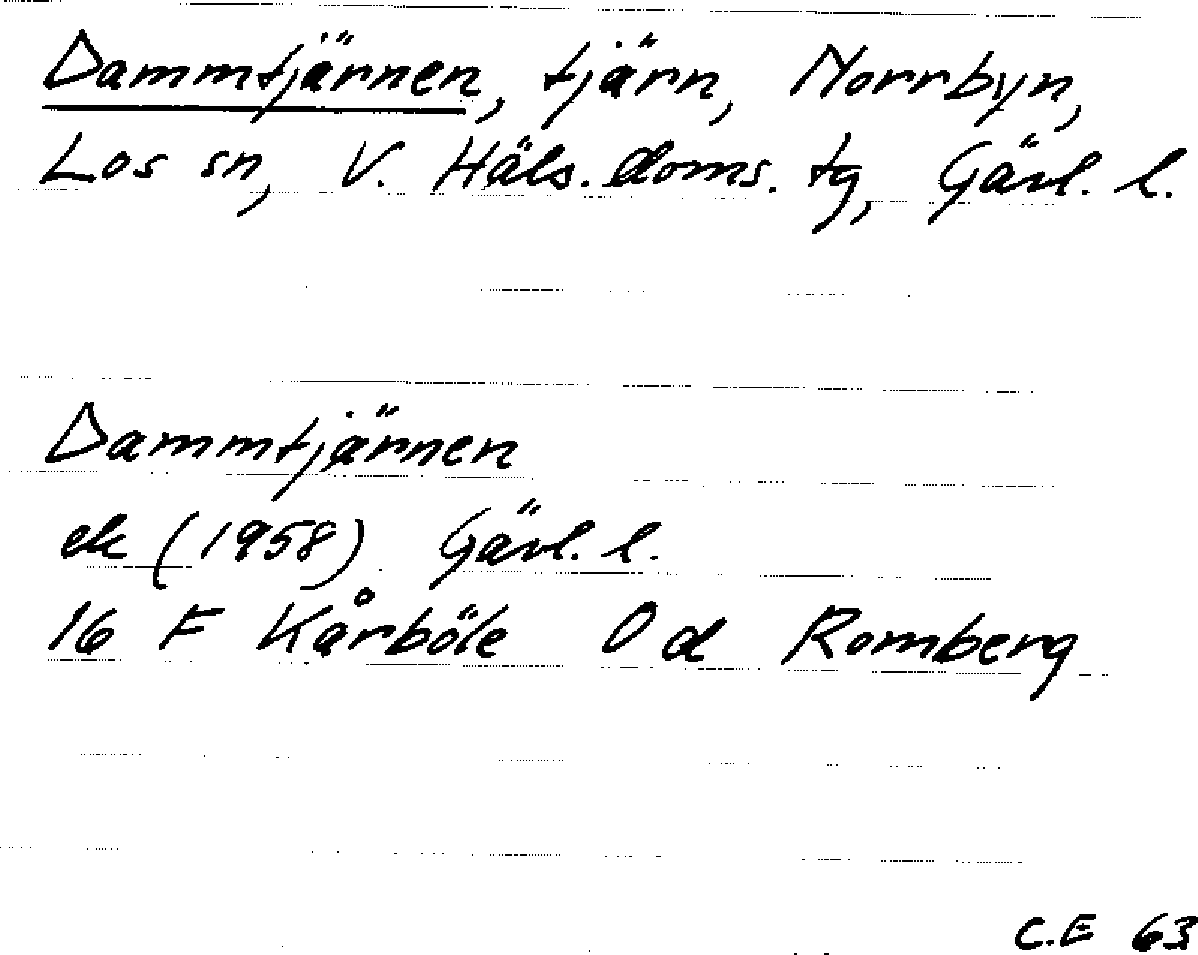 Dammtjärnen, tjärn, Norrbyn,
Los sn, V. Häls. doms. tg, Gävl. l.
Dammtjärnen
ek (1958) Gävl. l.
16 F Kårböle 0 d Romberg
C.E 63